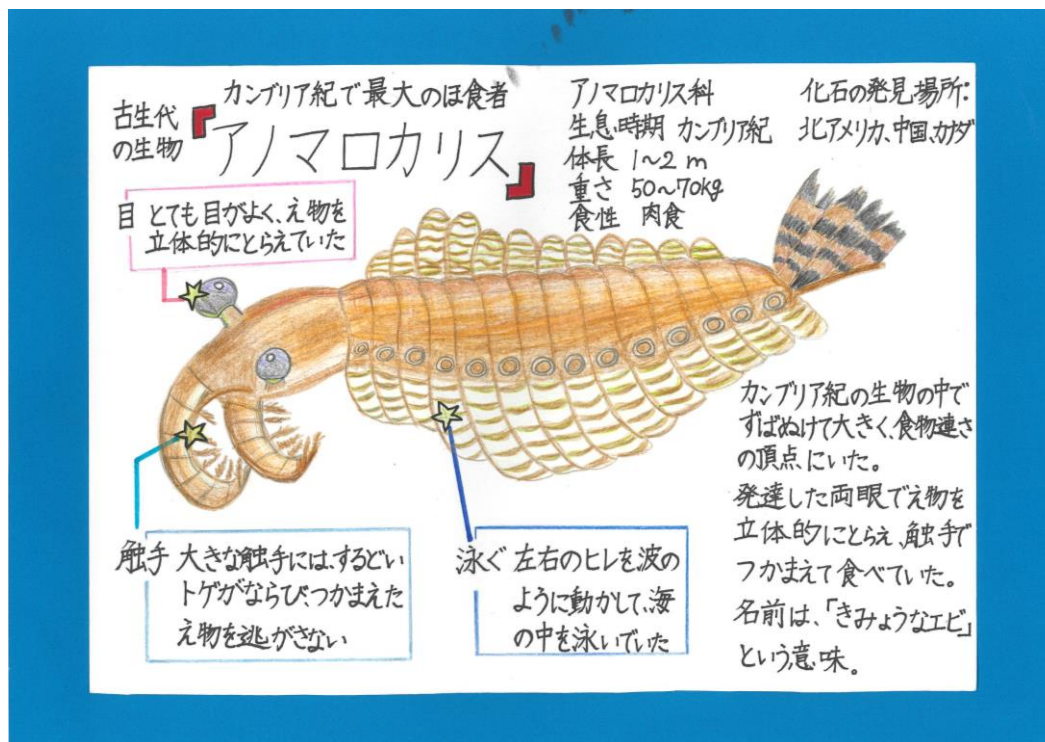 古生代
の生物
カンブリア紀で最大のほ食者
『アノマロカリス』
アノマロカリス科
生息時期 カンブリア紀
体長 1~2m
重さ 50~70kg
食性 肉食
化石の発見場所:
北アメリカ、中国、カナダ
目 とても目がよく、え物を
立体的にとらえていた
触手 大きな触手には、するどい
トゲがならび、つかまえた
え物を逃がさない
泳ぐ 左右のヒレを波の
ように動かして、海
の中を泳いでいた
カンブリア紀の生物の中で
ずばぬけて大きく、食物連さ
の頂点にいた。
発達した両眼でえ物を
立体的にとらえ、触手で
つかまえて食べていた。
名前は、「きみょうなエビ」
という意味。